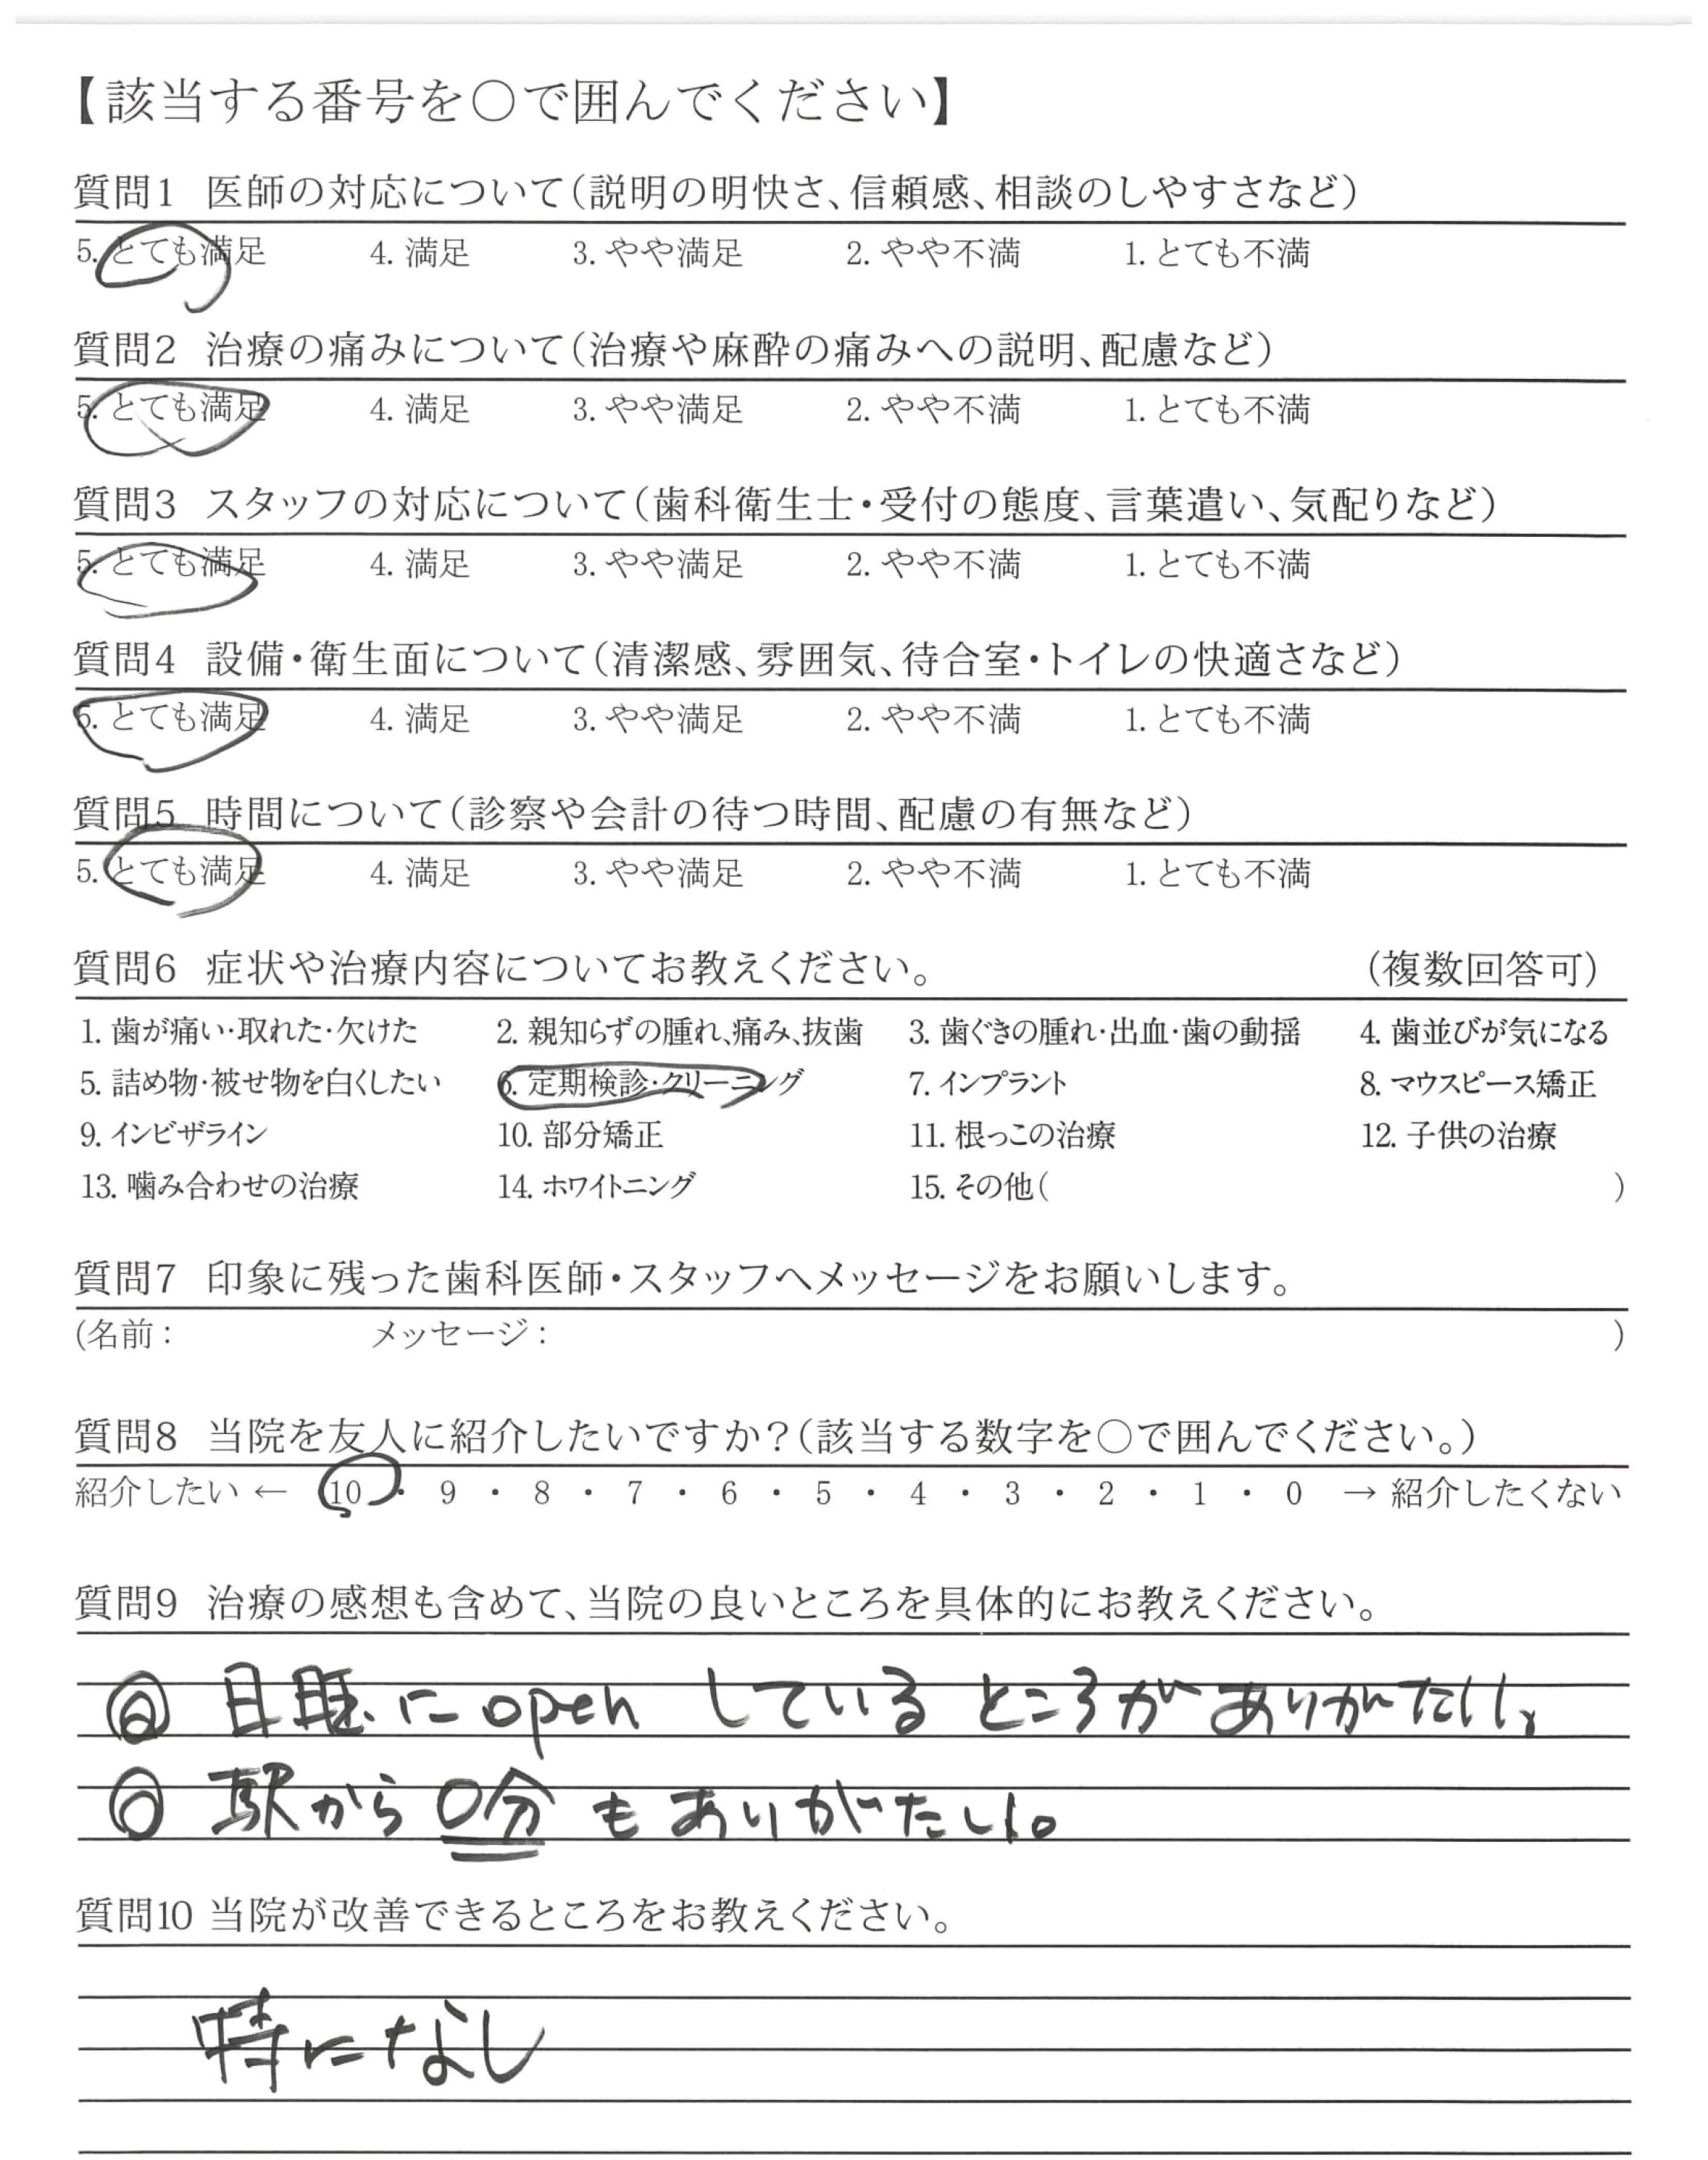 【該当する番号を○で囲んでください】
質問1 医師の対応について(説明の明快さ、信頼感、相談のしやすさなど)
5. とても満足 4. 満足 3. やや満足 2. やや不満 1. とても不満
質問2 治療の痛みについて(治療や麻酔の痛みへの説明、配慮など)
5. とても満足 4. 満足 3. やや満足 2. やや不満 1. とても不満
質問3 スタッフの対応について(歯科衛生士・受付の態度、言葉遣い、気配りなど)
5. とても満足 4. 満足 3. やや満足 2. やや不満 1. とても不満
質問4 設備・衛生面について(清潔感、雰囲気、待合室・トイレの快適さなど)
5. とても満足 4. 満足 3. やや満足 2. やや不満 1. とても不満
質問5 時間について(診察や会計の待つ時間、配慮の有無など)
5. とても満足 4. 満足 3. やや満足 2. やや不満 1. とても不満
質問6 症状や治療内容についてお教えください。 (複数回答可)
1. 歯が痛い・取れた・欠けた 2. 親知らずの腫れ、痛み、抜歯 3. 歯ぐきの腫れ・出血・歯の動揺 4. 歯並びが気になる
5. 詰め物・被せ物を白くしたい 6. 定期検診・クリーニング 7. インプラント 8. マウスピース矯正
9. インビザライン 10. 部分矯正 11. 根っこの治療 12. 子供の治療
13. 噛み合わせの治療 14. ホワイトニング 15. その他( )
質問7 印象に残った歯科医師・スタッフへメッセージをお願いします。
(名前: メッセージ: )
質問8 当院を友人に紹介したいですか?(該当する数字を○で囲んでください。)
紹介したい ← 10 ・ 9 ・ 8 ・ 7 ・ 6 ・ 5 ・ 4 ・ 3 ・ 2 ・ 1 ・ 0 → 紹介したくない
質問9 治療の感想も含めて、当院の良いところを具体的にお教えください。
◎ 日曜に open しているところがありがたい、
◎ 駅から 0分 もありがたい。
質問10 当院が改善できるところをお教えください。
特になし